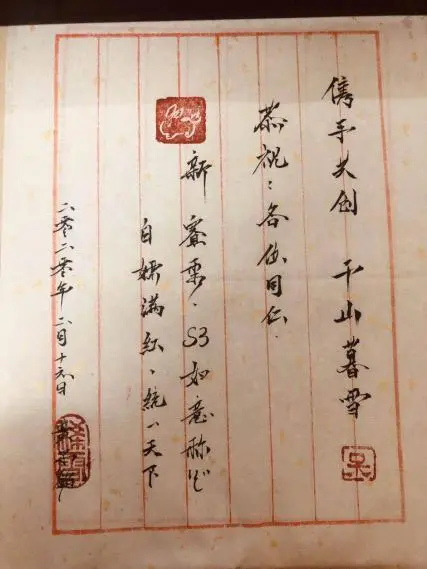 携手共创 千山暮雪
恭祝:各位同仁.
新赛季.S3如意称心
自嬬满红、统一天下
二零二零年二月十六日